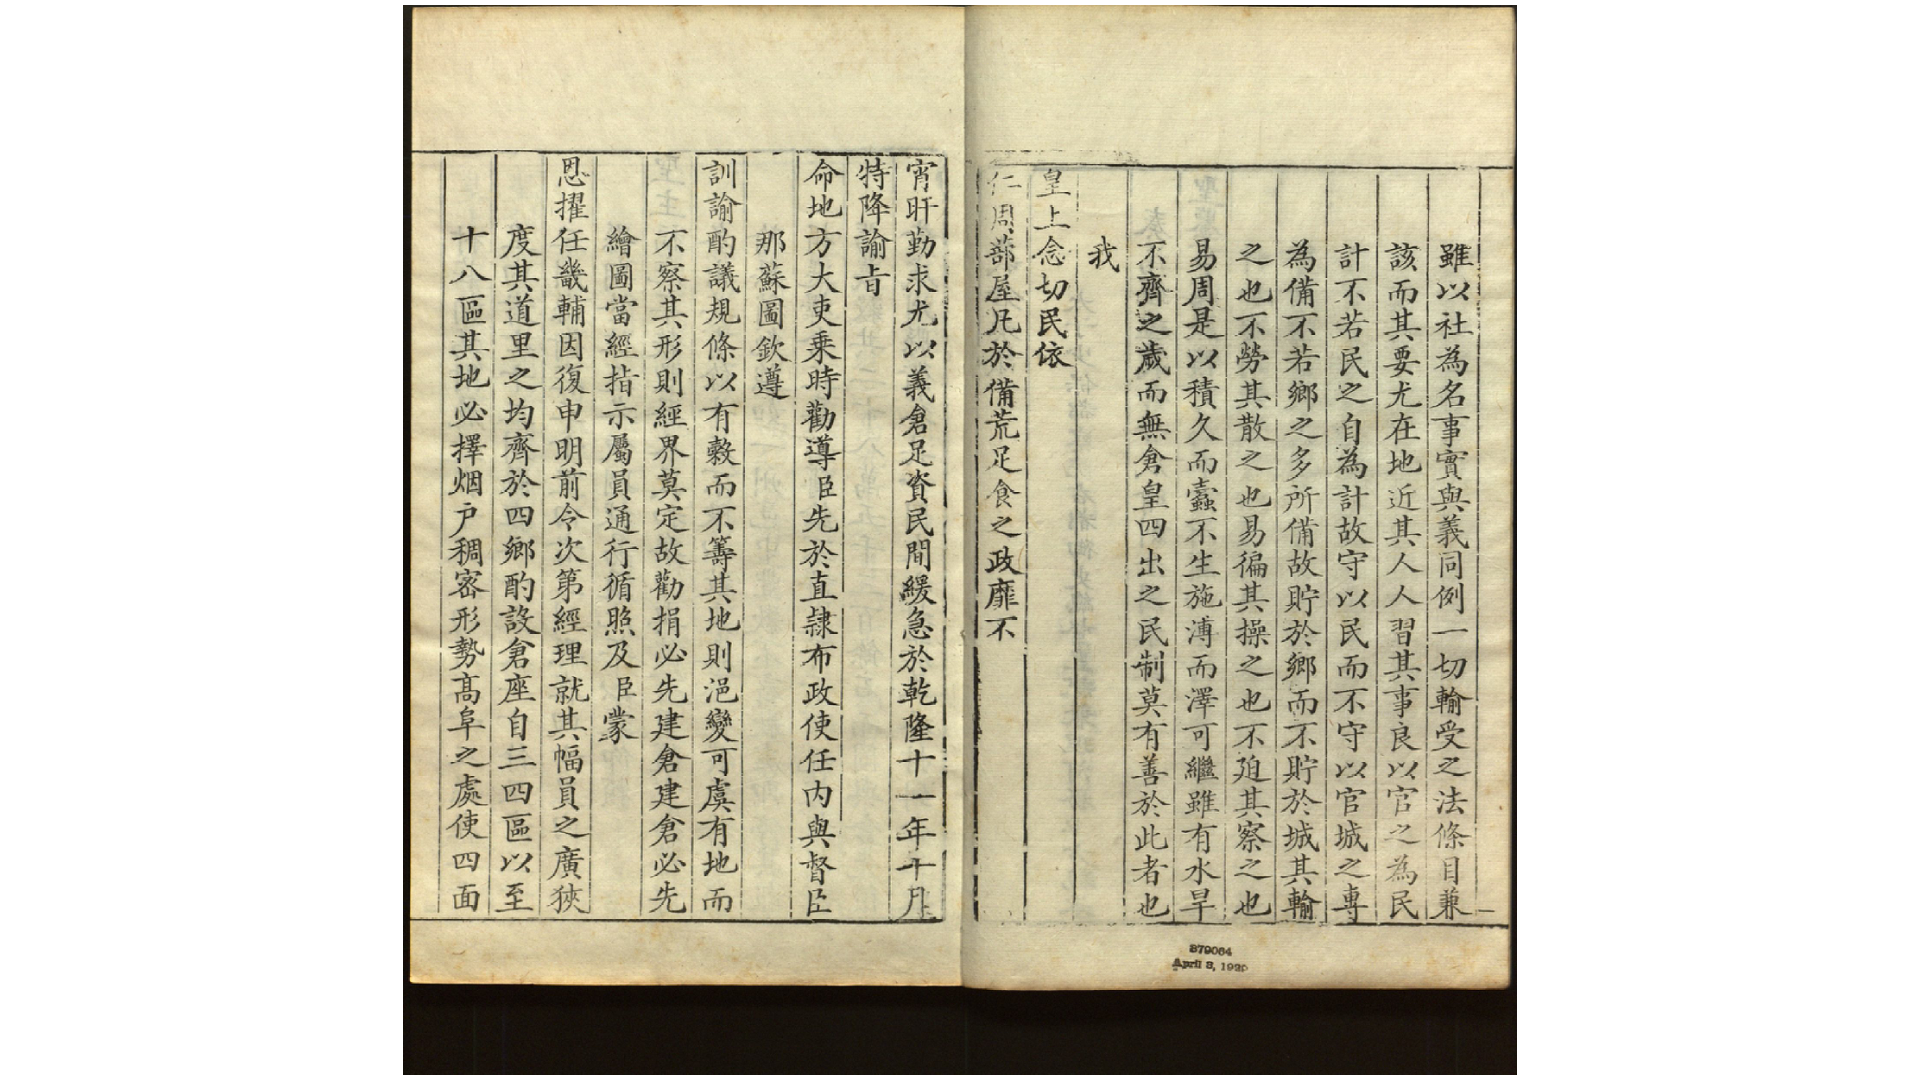 雖以社為名事實與義同例一切輸受之法條目兼
該而其要尤在地近其人人習其事良以官之為民
計不若民之自為計故守以民而不守以官城之專
為備不若鄉之多所備故貯於鄉而不貯於城其輸
之也不勞其散之也易徧其操之也不廹其察之也
易周是以積久而蠹不生施溥而澤可繼雖有水旱
不齊之歲而無倉皇四出之民制莫有善於此者也
我
皇上念切民依
仁周蔀屋凡於備荒足食之政靡不
宵旰勤求尤以義倉足資民間緩急於乾隆十一年十月
特降諭㫖
命地方大吏乗時勸導臣先於直隸布政使任内與督臣
那蘇圖欽遵
訓諭酌議規條以有穀而不籌其地則浥變可虞有地而
不察其形則經界莫定故勸捐必先建倉建倉必先
繪圖當經指示屬員通行循照及臣蒙
恩擢任畿輔因復申明前令次第經理就其幅員之廣狹
度其道里之均齊於四鄉酌設倉座自三四區以至
十八區其地必擇烟戶稠宻形勢髙阜之處使四面
379064
April 3, 1929